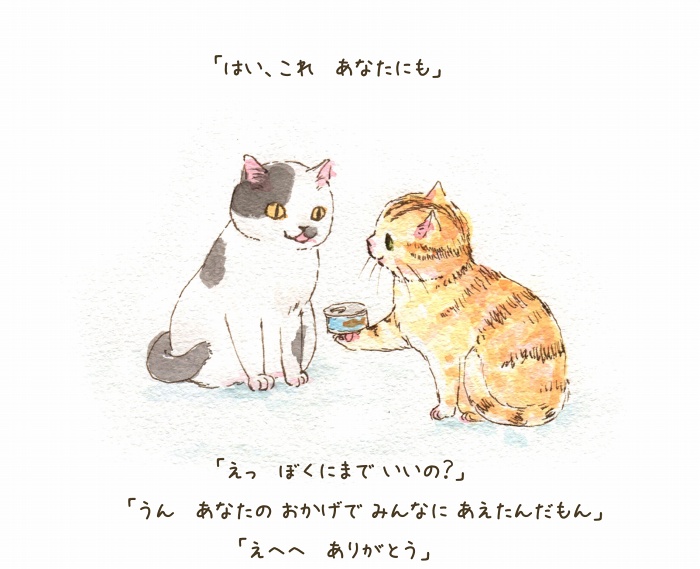 「はい、これ　あなたにも」
「えっ　ぼくにまで いいの？」
「うん　あなたの おかげで みんなに あえたんだもん」
「えへへ　ありがとう」